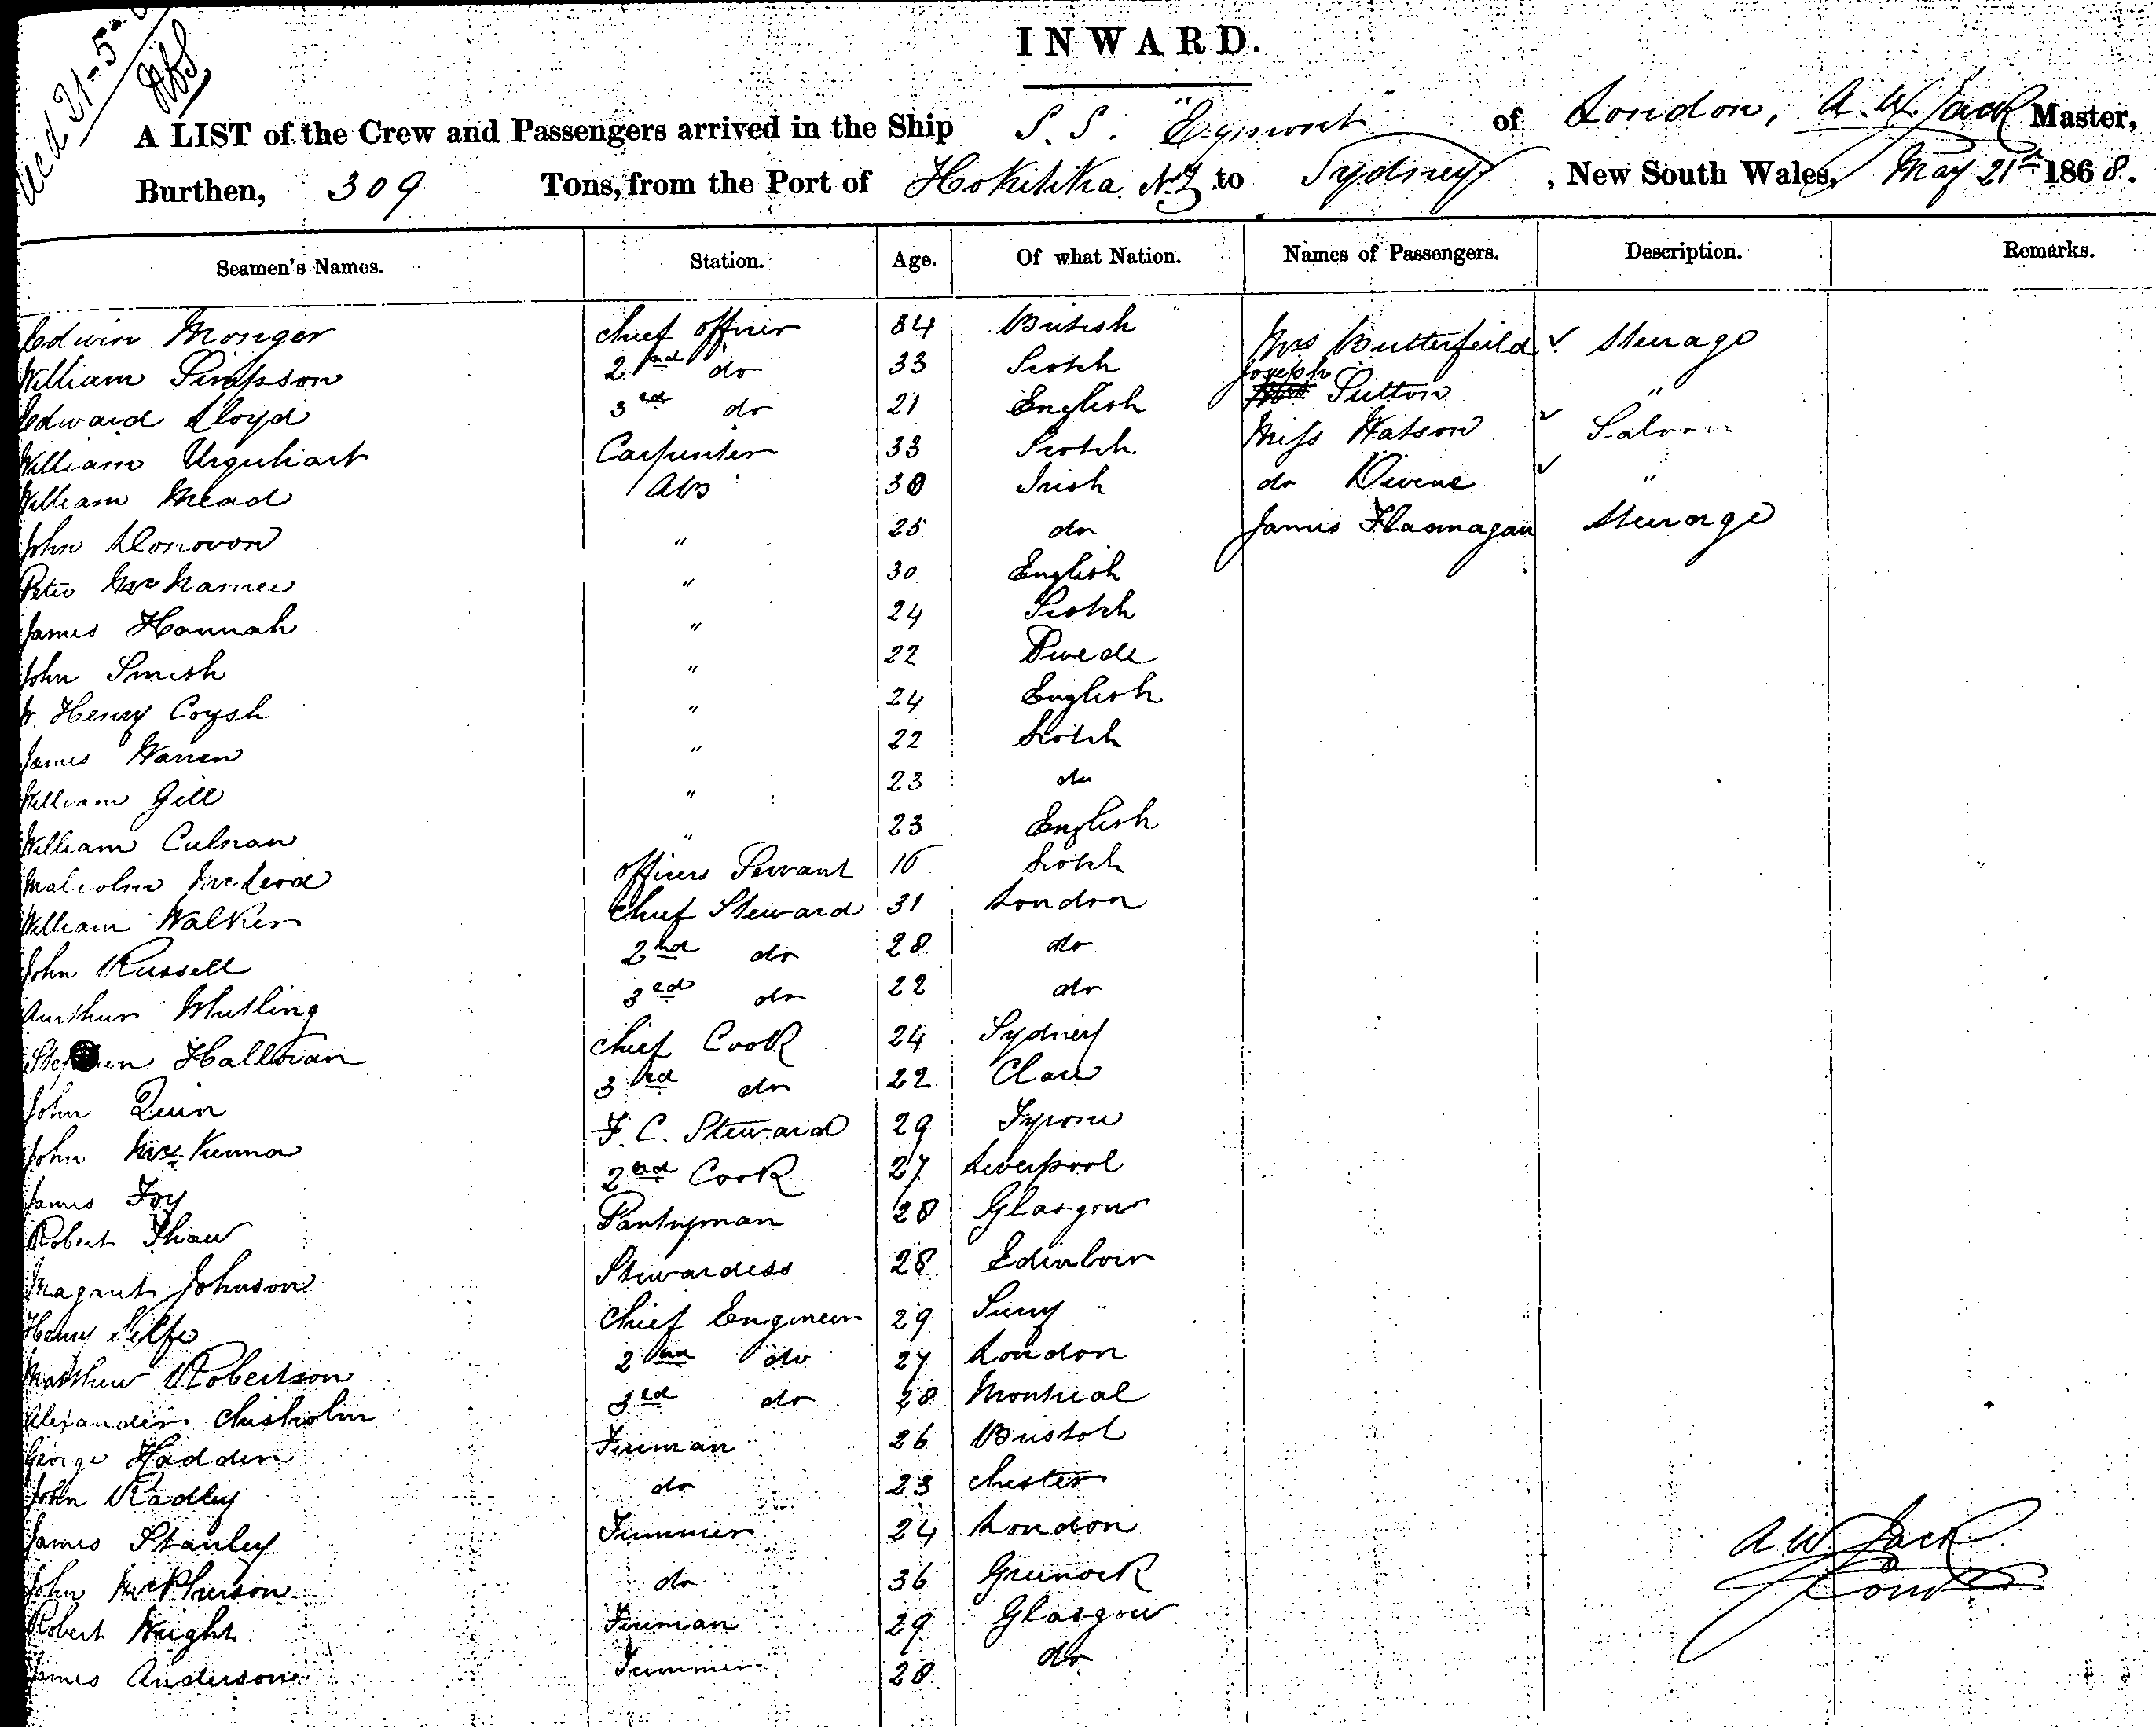 INWARD.
A LIST of the Crew and Passengers arrived in the Ship S.S. "Egmont" of London, A. W. Jack Master,
Burthen, 309 Tons, from the Port of Hokitika N.Z to Sydney, New South Wales, May 21st 1868.
Seamen's Names. Station. Age. Of what Nation. Names of Passengers. Description. Remarks.
Edwin Monger chief officer 34 British Mrs Butterfeild Steerage
William Simpson 2nd do 33 Scotch Joseph Sutton "
Edward Lloyd 3rd do 21 English Miss Watson Saloon
William Urquhart Carpenter 33 Scotch do Divene "
William Mead AB 30 Irish James Flannagan Steerage
John Donovon " 25 do
Peter McNamee " 30 English
James Hannah " 24 Scotch
John Smith " 22 Swede
W. Henry Coysh " 24 English
James Warren " 22 Scotch
William Gill " 23 do
William Culnan " 23 English
Malcolm McLeod officers Servant 16 Scotch
William Walker Chief Steward 31 London
John Russell 2nd do 28 do
Aurthur Whitling 3rd do 22 do
Stephen Halloran chief Cook 24 Sydney
John Quin 3rd do 22 Clare
John McKenna F. C. Steward 29 Tyrone
James Foy 2nd Cook 27 Liverpool
Robert Shaw Pantryman 28 Glasgow
Magaret Johnson Stewardess 28 Edinboir
Henry Selfe Chief Engineer 29 Surry
Matthew Robertson 2nd do 27 London
Alexander Chisholm 3rd do 28 Montreal
George Hadden Fireman 26 Bristol
John Radley do 23 Chester
James Stanley Trimmer 24 London
John McPherson do 36 Greenock
Robert Wright Fireman 29 Glasgow
James Anderson Trimmer 28 do
A W. Jack